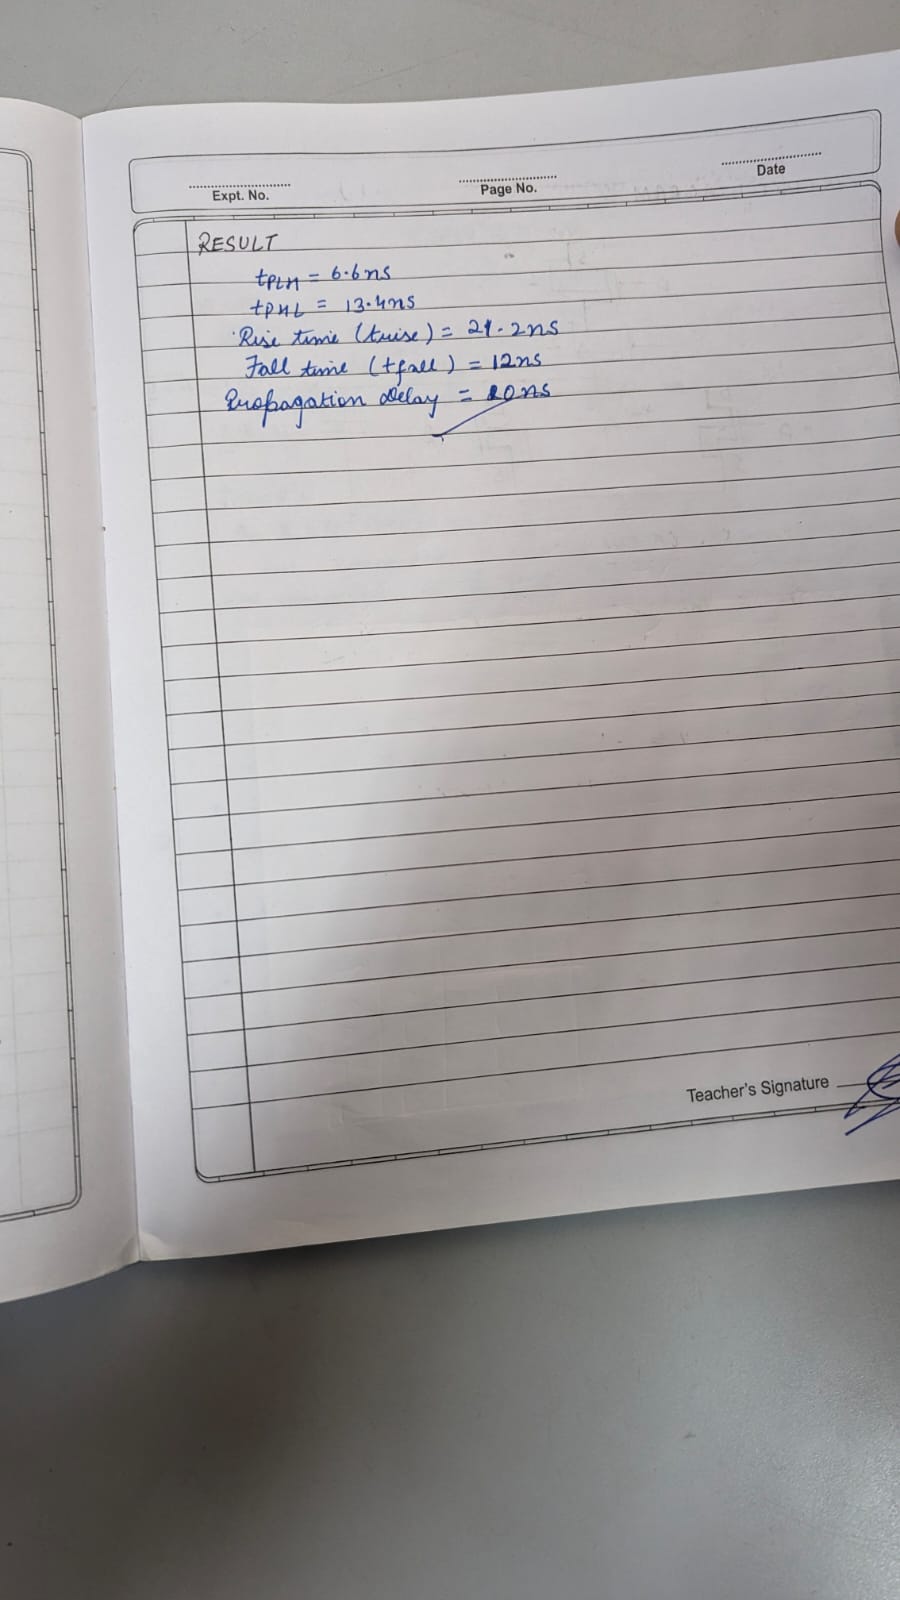 Expt. No.
Page No.
Date
RESULT
tPLH = 6.6ns
tPHL = 13.4ns
Rise time (trise) = 21.2ns
Fall time (tfall) = 12ns
Propagation Delay = 10ns
Teacher's Signature